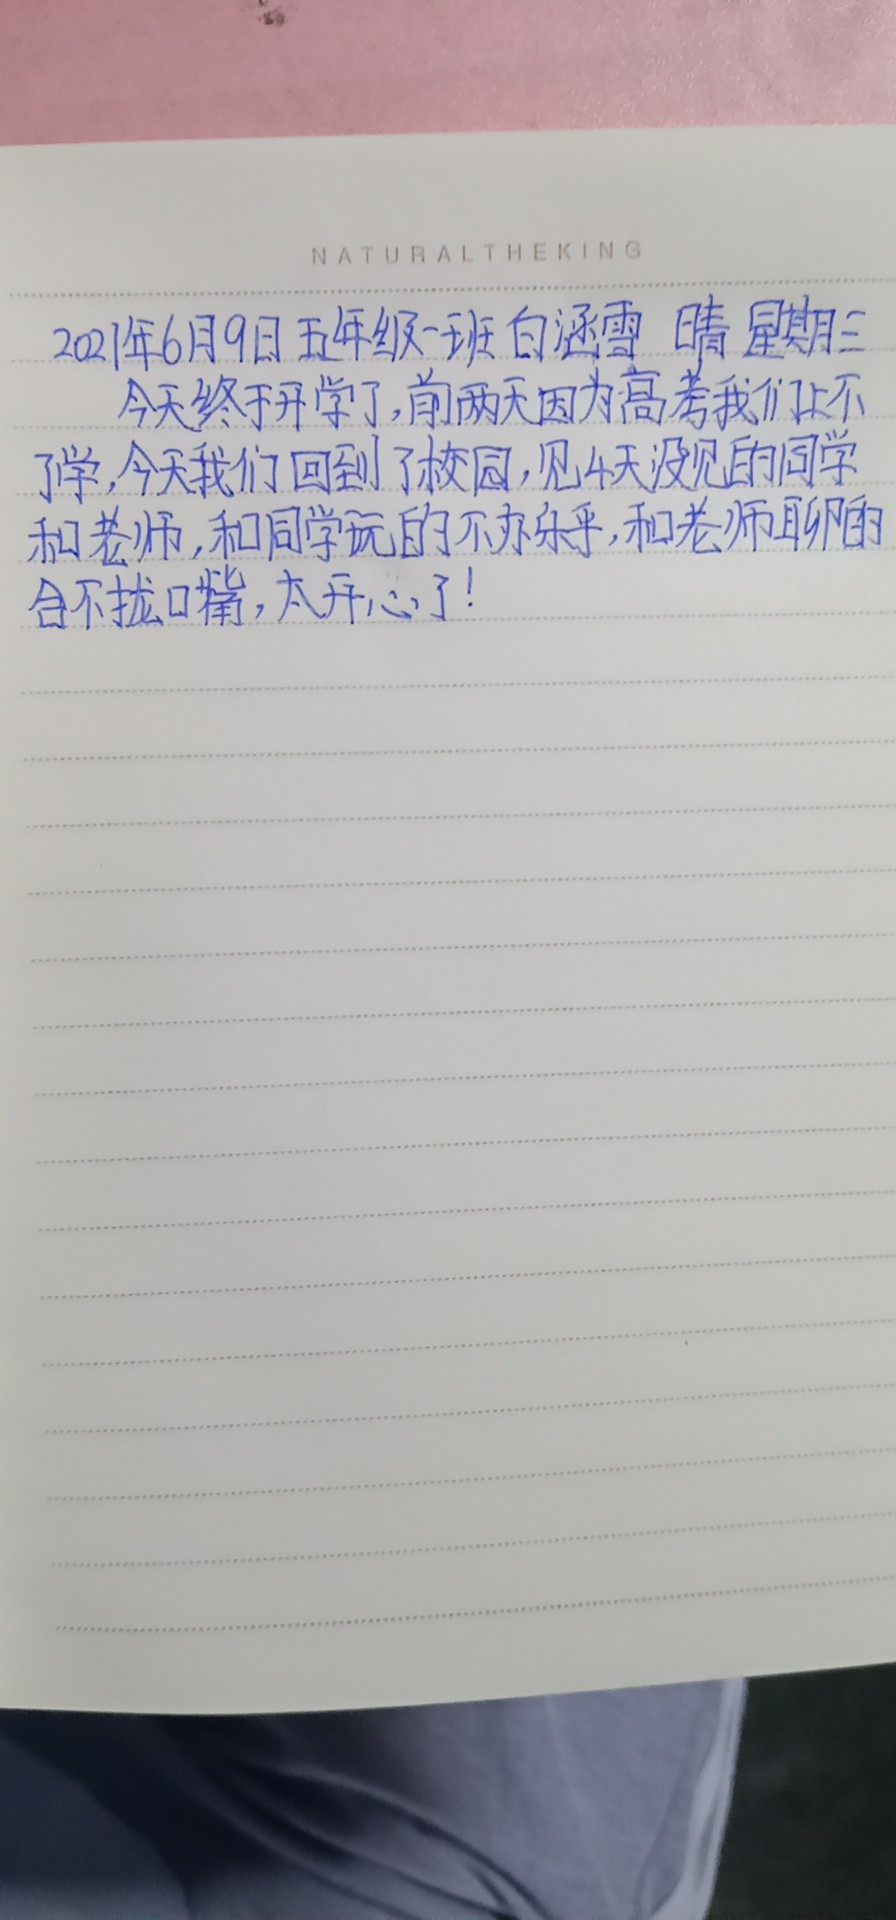 NATURALTHEKING
2021年6月9日五年级一班白涵雪 晴 星期三
今天终于开学了,前两天因为高考我们上不
了学,今天我们回到了校园,见4天没见的同学
和老师,和同学玩的不亦乐乎,和老师聊的
合不拢口嘴,太开心了!